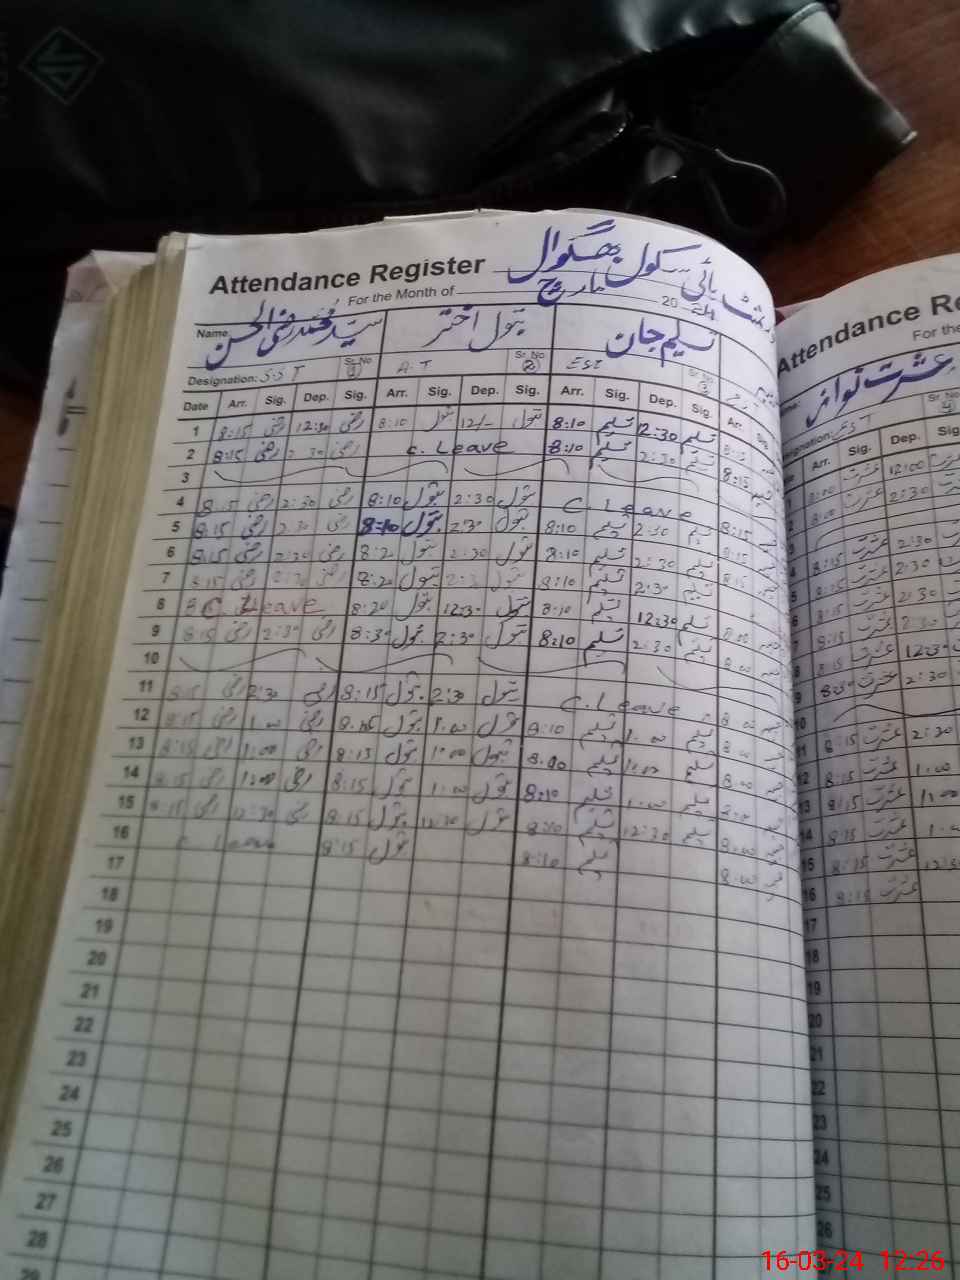 Attendance Register ہائی سکول بھگوال
For the Month of مارچ 20 24
Name سید محمد رضی الحسن بتول اختر تسلیم جان
Designation: S.S.T Sr. No. 1 A.T Sr. No. 2 EST Sr. No. 3
Date Arr. Sig. Dep. Sig. Arr. Sig. Dep. Sig. Arr. Sig. Dep. Sig. Arr. Sig.
1 8:15 رضی 12:30 رضی 8:10 بتول 12/- بتول 8:10 تسلیم 12:30 تسلیم 8:15
2 8:15 رضی 2:30 رضی C. Leave 8:10 تسلیم 2:30 تسلیم 8:15
3
4 8:15 رضی 2:30 رضی 8:10 بتول 2:30 بتول C. Leave 8:15
5 8:15 رضی 2:30 رضی 8:10 بتول 2:30 بتول 8:10 تسلیم 2:30 تسلیم 8:15
6 8:15 رضی 2:30 رضی 8:20 بتول 2:30 بتول 8:10 تسلیم 2:30 تسلیم 8:15
7 8:15 رضی 2:30 رضی 8:20 بتول 2:30 بتول 8:10 تسلیم 2:30 تسلیم
8 C. Leave 8:20 بتول 12:30 بتول 8:10 تسلیم 12:30 تسلیم 8:00
9 8:15 رضی 2:30 رضی 8:30 بتول 2:30 بتول 8:10 تسلیم 2:30 تسلیم 8:00
10
11 8:15 رضی 2:30 رضی 8:15 بتول 2:30 بتول C. Leave 8:00
12 8:15 رضی 1:00 رضی 8:15 بتول 1:00 بتول 8:10 تسلیم 1:00 تسلیم 8:00
13 8:15 رضی 1:00 رضی 8:15 بتول 1:00 بتول 8:10 تسلیم 1:00 تسلیم 8:00
14 8:15 رضی 1:00 رضی 8:15 بتول 1:00 بتول 8:10 تسلیم 1:00 تسلیم
15 8:15 رضی 12:30 رضی 8:15 بتول 12:30 بتول 8:10 تسلیم 12:30 تسلیم 8:00
16 C. Leave 8:15 بتول 8:10 تسلیم 8:00
17
18
19
20
21
22
23
24
25
26
27
28
29
Attendance Re
For the
عشرت نواز
Designation: EST Sr. No. 4
Arr. Sig. Dep. Sig.
8:00 عشرت 12:00 عشرت
8:00 عشرت 2:30
3
4 8:15 عشرت 2:30
5 8:15 عشرت 2:30
8:15 عشرت 2:30
8:15 عشرت 2:30
8 8:15 عشرت 12:30
9 8:50 عشرت 2:30
10
11 8:15 عشرت 2:30
12 8:15 عشرت 1:00
13 8:15 عشرت 1:00
14 8:15 عشرت
15 8:15 عشرت
16 8:15 عشرت
17
18
19
20
21
22
23
24
25
26
16-03-24 12:26